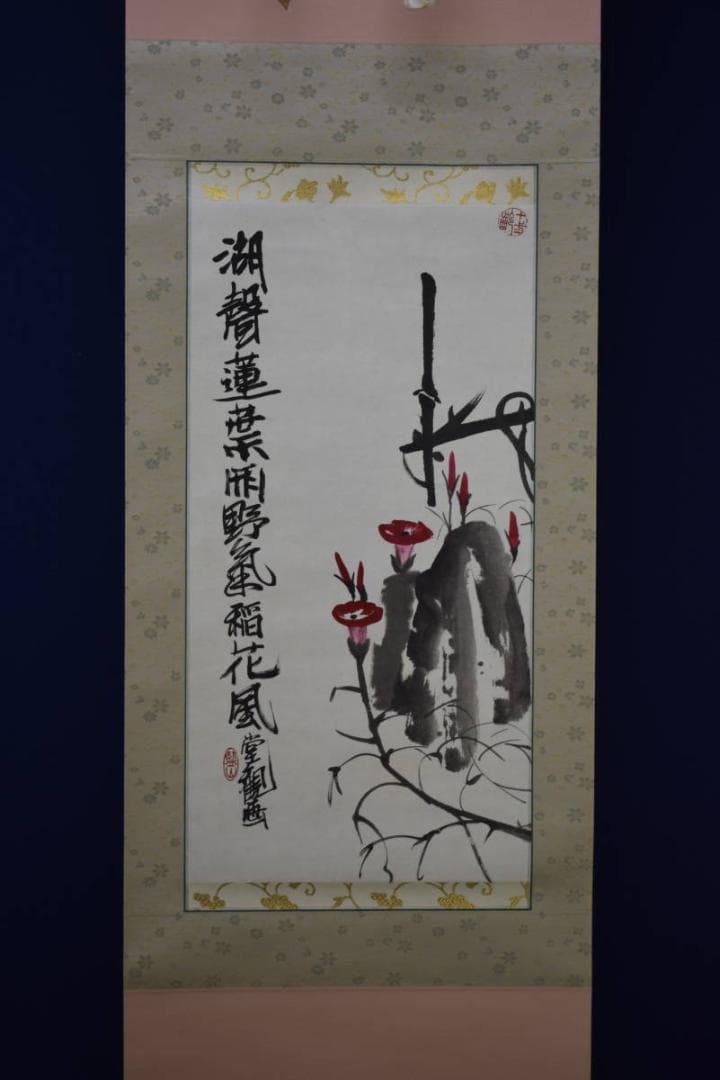 湖聲蓮葉雨野氣稻花風堂